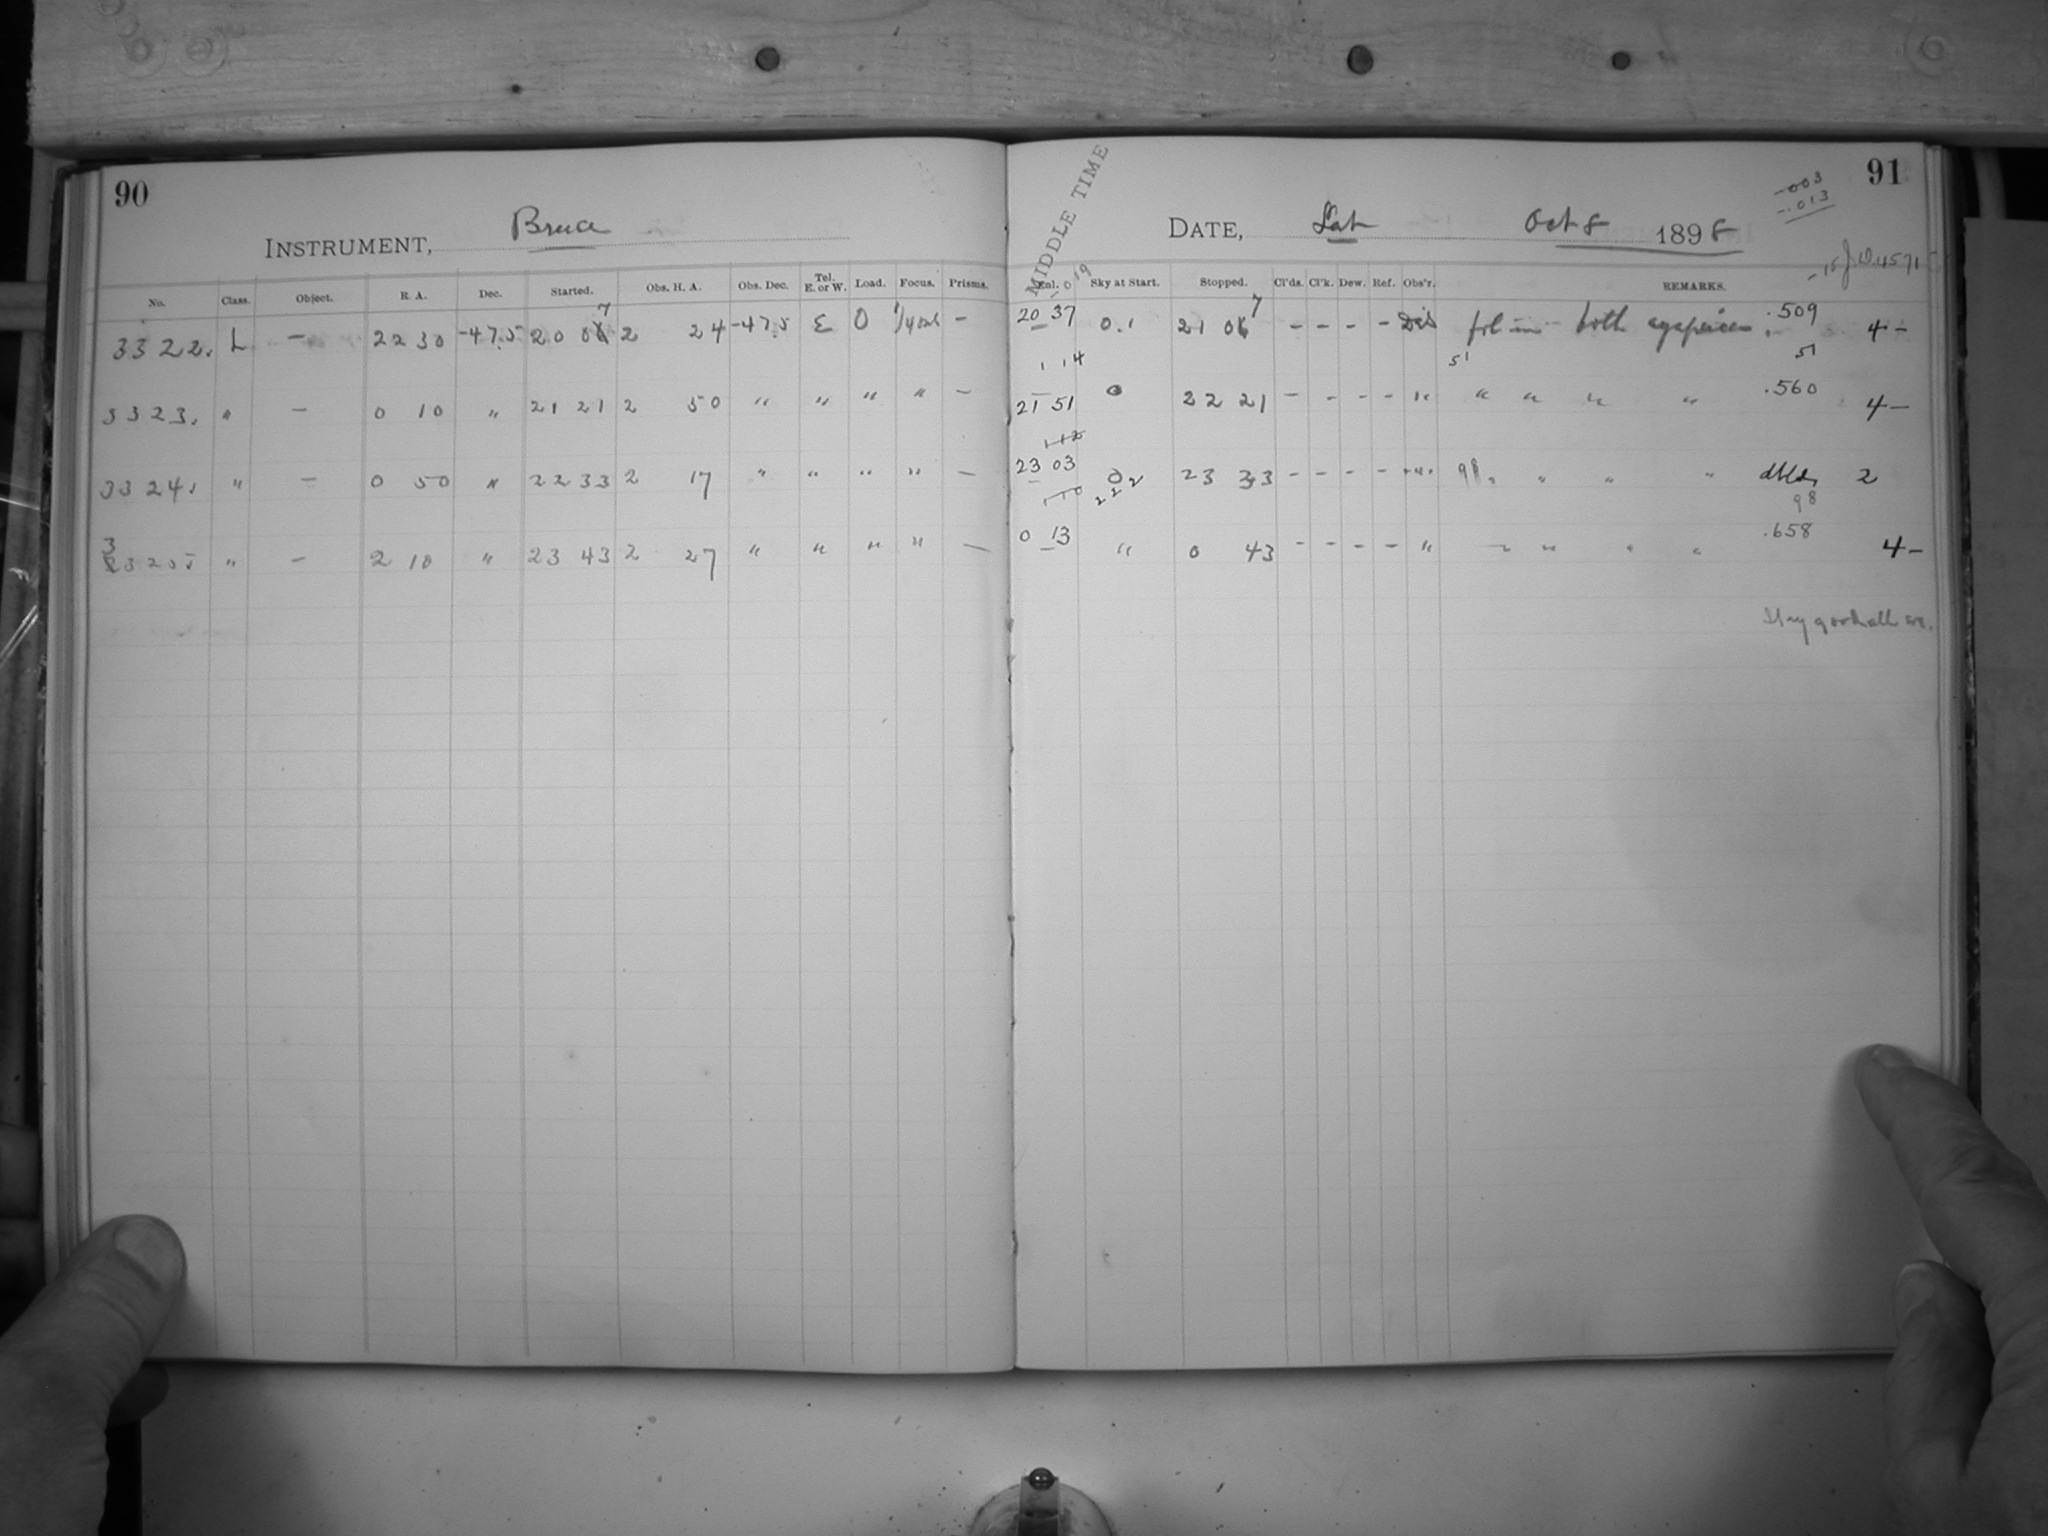 90
INSTRUMENT, Bruce
No. Class. Object. R. A. Dec. Started. Obs. H. A. Obs. Dec. Tel. E. or W. Load. Focus. Prisms.
3322. L — 22 30 -47.5 20 07 2 24 -47.5 E 0 —
3323. " — 0 10 " 21 21 2 50 " " " " —
3324. " — 0 50 " 22 33 2 17 " " " " —
3325 " — 2 10 " 23 43 2 27 " " " " —
91
-003
-.013
MIDDLE TIME
DATE, Sat Oct 8 1898
-15 J.D. 4571
Enl. Sky at Start. Stopped. Cl'ds. Cl'k. Dew. Ref. Obs'r. REMARKS.
20 37 0.1 21 07 — — — — both .509 4 —
1 14 51 51
21 51 0 22 21 — — — — " " " " " .560 4 —
1 12
23 03 0 23 33 — — — — " 98 " " " " 2
1 10 222 98
0 13 " 0 43 — — — — " " " " " .658 4 —